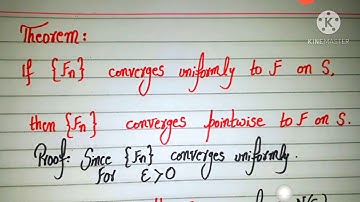 KINEMASTER
Theorem:
If {Fn} converges uniformly to F on S,
then {Fn} converges pointwise to F on S.
Proof: Since {Fn} converges uniformly.
For ε>0